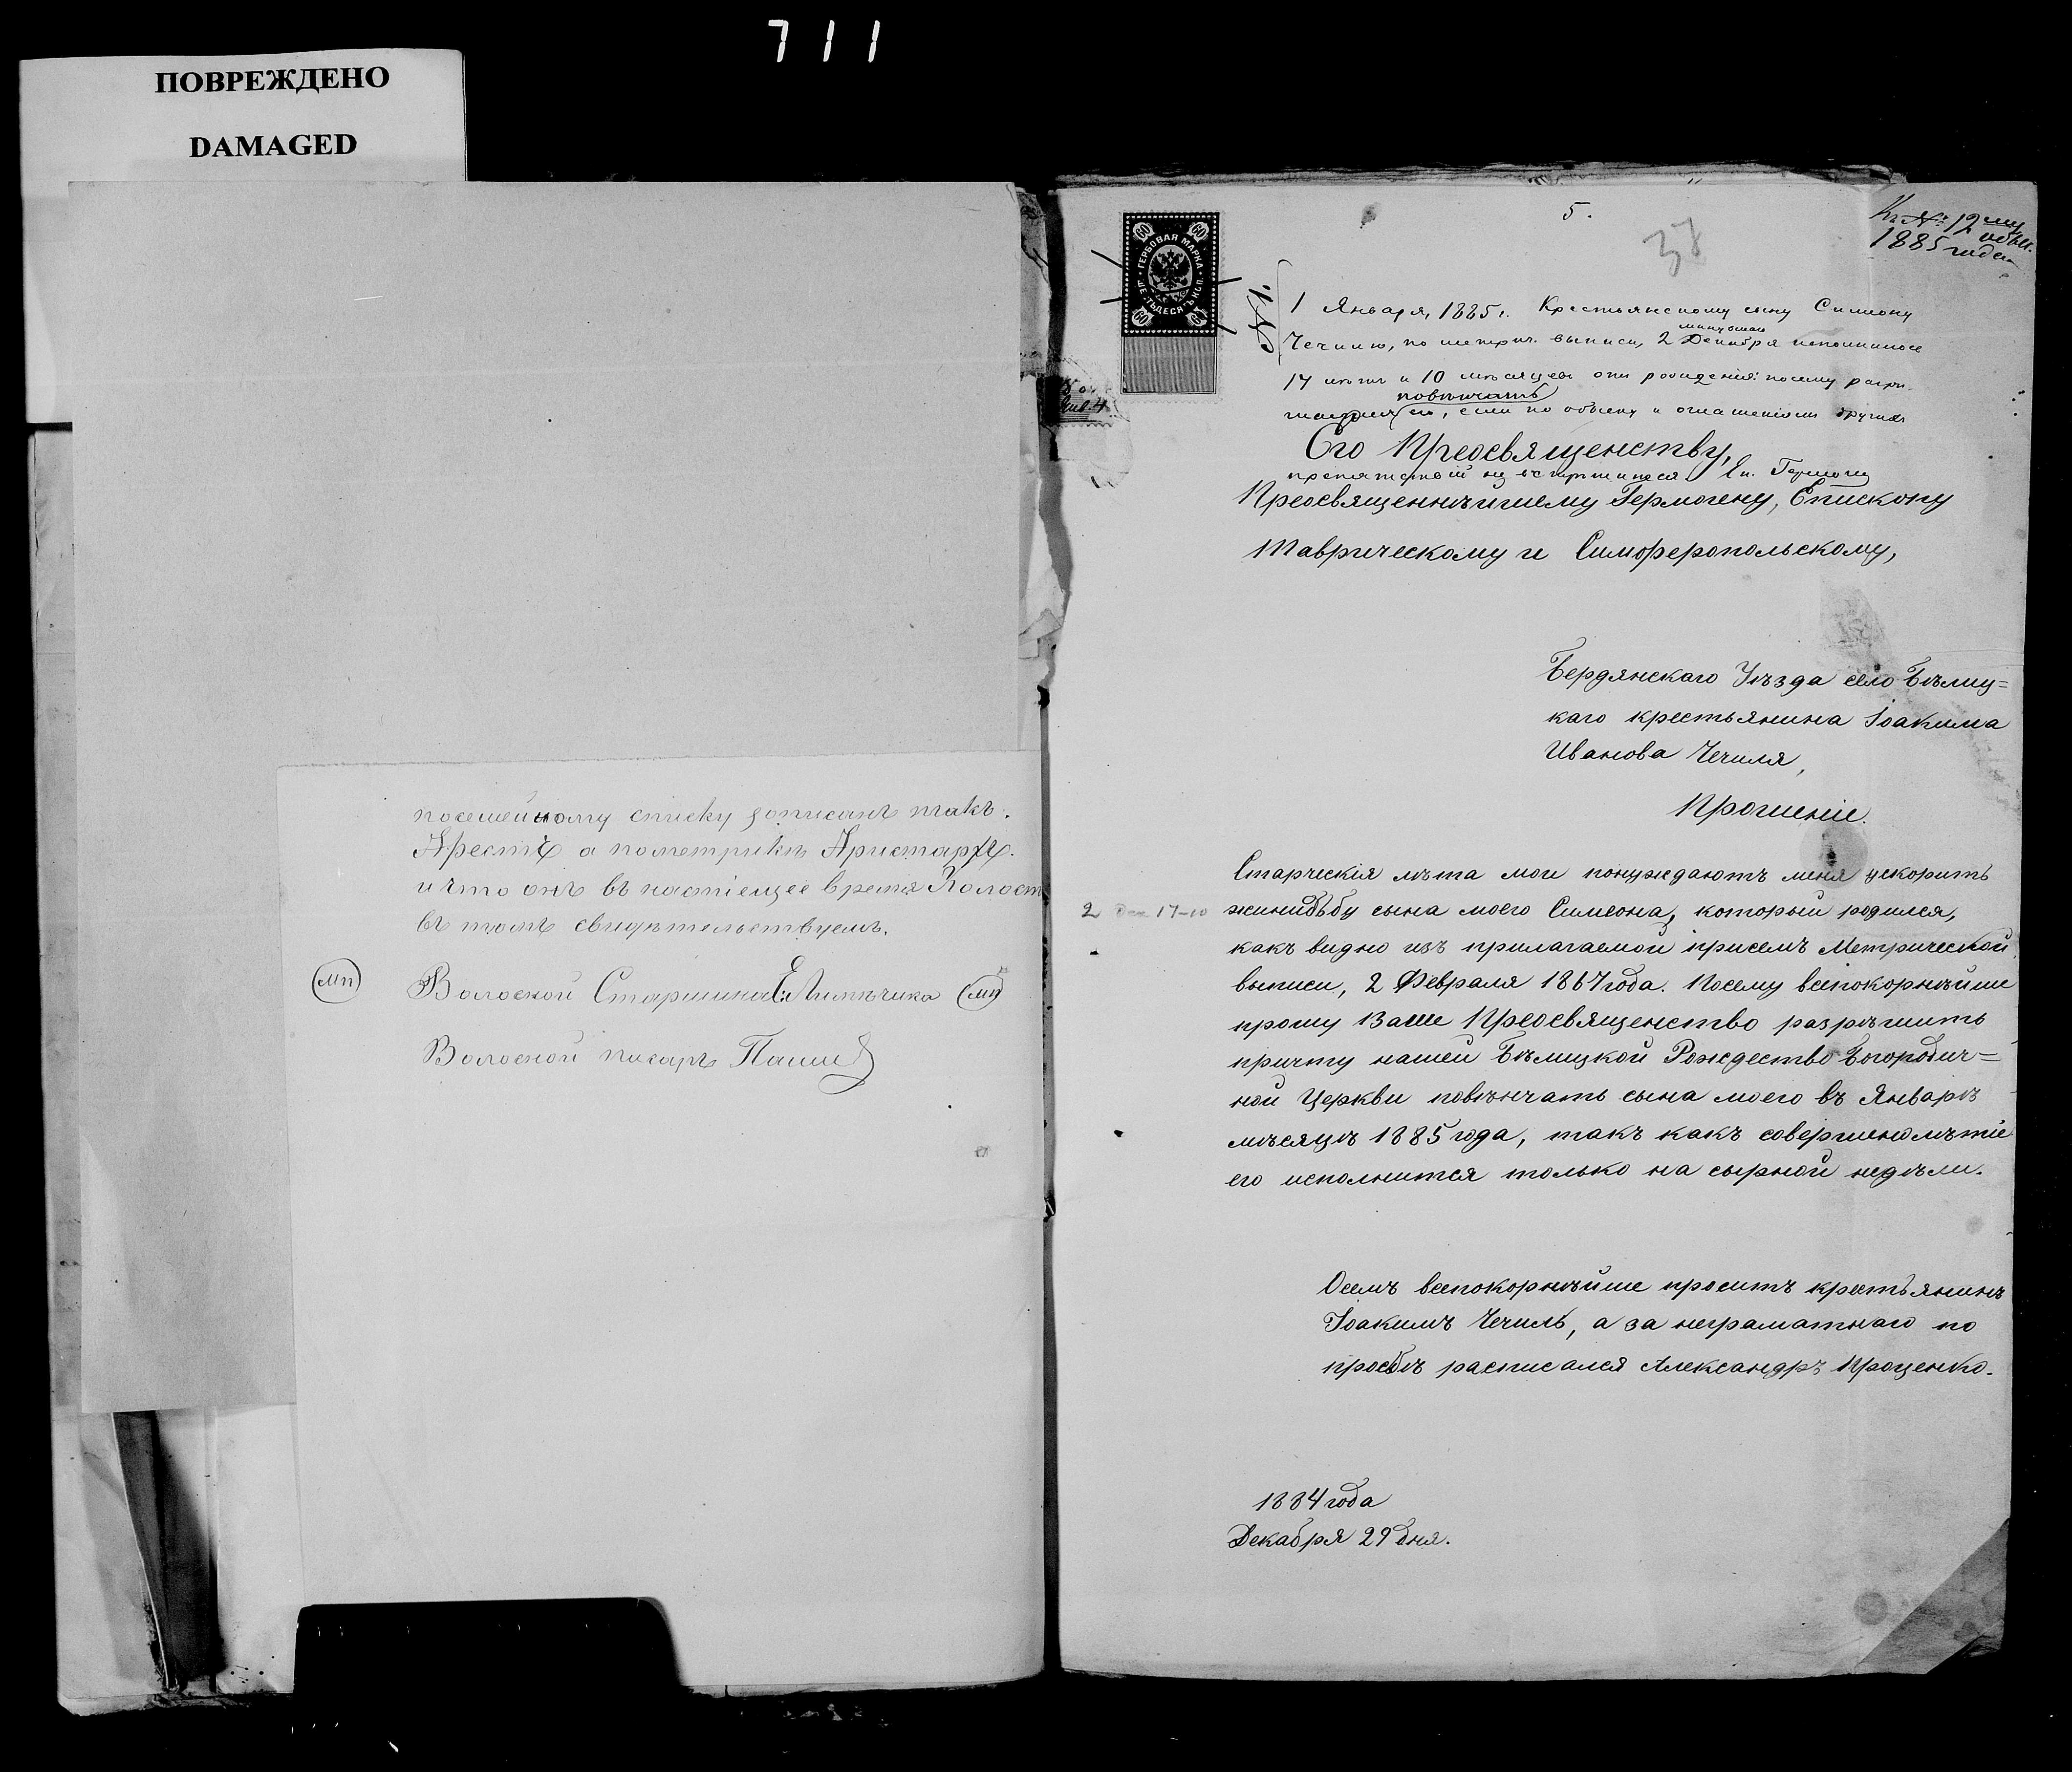 711
ПОВРЕЖДЕНО
DAMAGED
посемейному списку записанъ такъ:
а пометрикѣ Аристархъ.
и что онъ въ настіещее время Холост
въ томъ свидѣтельствуемъ.
МП Волосной Старшина МП
Волосной писарь
5.
38
Къ № 12
1885 года
60 60
ГЕРБОВАЯ МАРКА
ШЕСТЬДЕСЯТЪ КОП.
60 60
№ 1.
1 Января, 1885 г. Крестьянскому сыну Симеону
минувшаго
Чечилю, по метрич. выписи, 2 Декабря исполнилось
17 лѣтъ и 10 мѣсяцевъ отъ рожденія: посему разрѣ-
повѣнчать
шается, если по обыску и оглашеніямъ другихъ
Его Преосвященству,
препятствій не встрѣтится. Еп. Гермогенъ
Преосвященнѣйшему Гермогену, Епископу
Таврическому и Симферопольскому,
Бердянскаго Уѣзда село Бѣлиц=
каго крестьянина Іоакима
Иванова Чечиля,
Прошеніе.
Старческія лѣта мои понуждаютъ меня ускорить
2 Дек 17-10
жинидьбу сына моего Симеона, который родился,
какъ видно изъ прилагаемой присемъ Метрической
выписи, 2 Февраля 1867 года. Посему всепокорнѣйше
прошу Ваше Преосвященство разрѣшить
причту нашей Бѣлицкой Рождество-Богородич=
ной Церкви повѣнчать сына моего въ Январѣ
мѣсяцѣ 1885 года, такъ какъ совершенолѣтіе
его исполнится только на сырной недѣли.
Осемъ всепокорнѣйше проситъ крестьянинъ
Іоакимъ Чечиль, а за неграматнаго по
просьбѣ расписался Александръ Проценко.
1884 года
Декабря 29 дня.